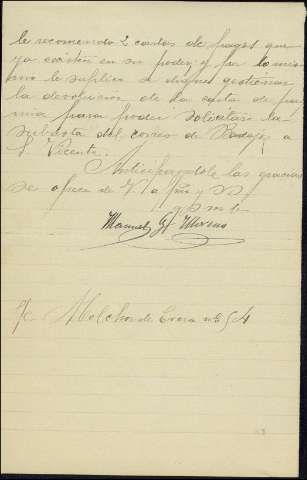 le recomendo 2 cartas de pagos que
ya existen en su poder, y por lo mis
mo le suplica se digne gestionar
la devolución de la carta de pa
para poder solicitar la
subasta del correo de Badajoz a
S. Vicente.
Anticipandole las gracias
se ofrece de V. a
q b s m
Manuel Gz Moreno
S/c Melchor de Evora nº 54